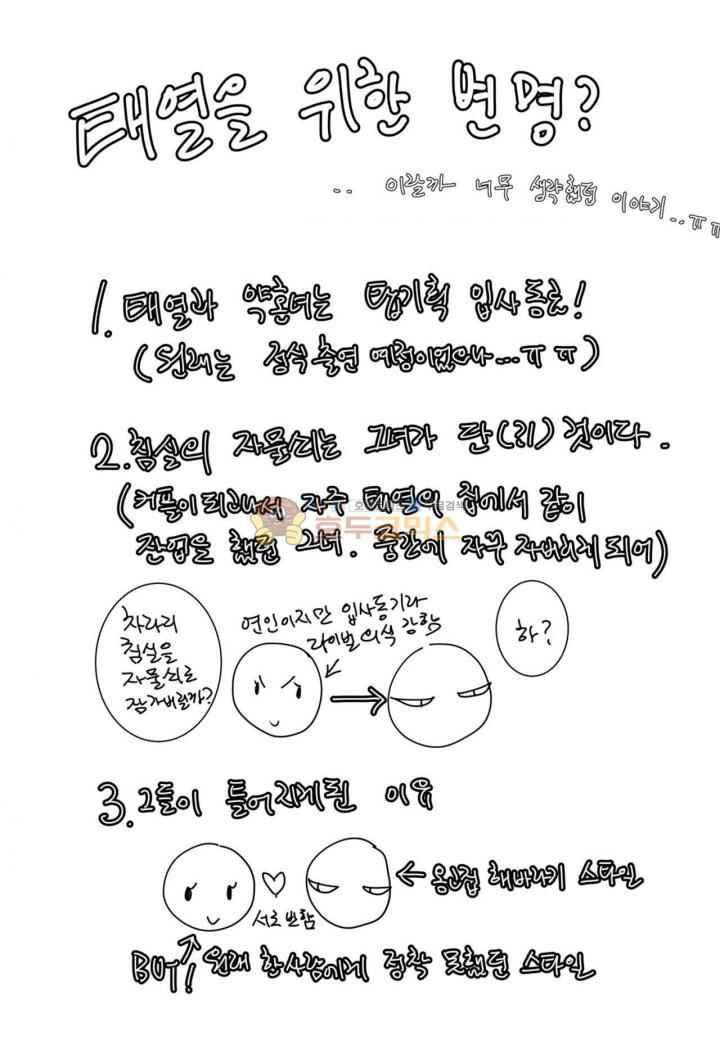 태열을 위한 변명?
.. 이랄까 너무 생략했던 이야기..ㅠㅠ
1. 태열과 약혼녀는 탑기획 입사동료!
(원래는 정식 출연 예정이었으나...ㅠㅠ)
2. 침실의 자물쇠는 그녀가 단(긔) 것이다.
(커플이 되고나서 자주 태열의 집에서 같이
호두코믹스
잔업을 했던 그녀. 중간에 자꾸 자버리게되어)
차라리
침실을
자물쇠로
잠가버릴까?
연인이지만 입사동기라
라이벌 의식 강함
하?
3. 그들이 틀어지게된 이유
서로 반함
← 옹고집 해바라기 스타일
BUT! 원래 한사람에게 정착 못했던 스타일